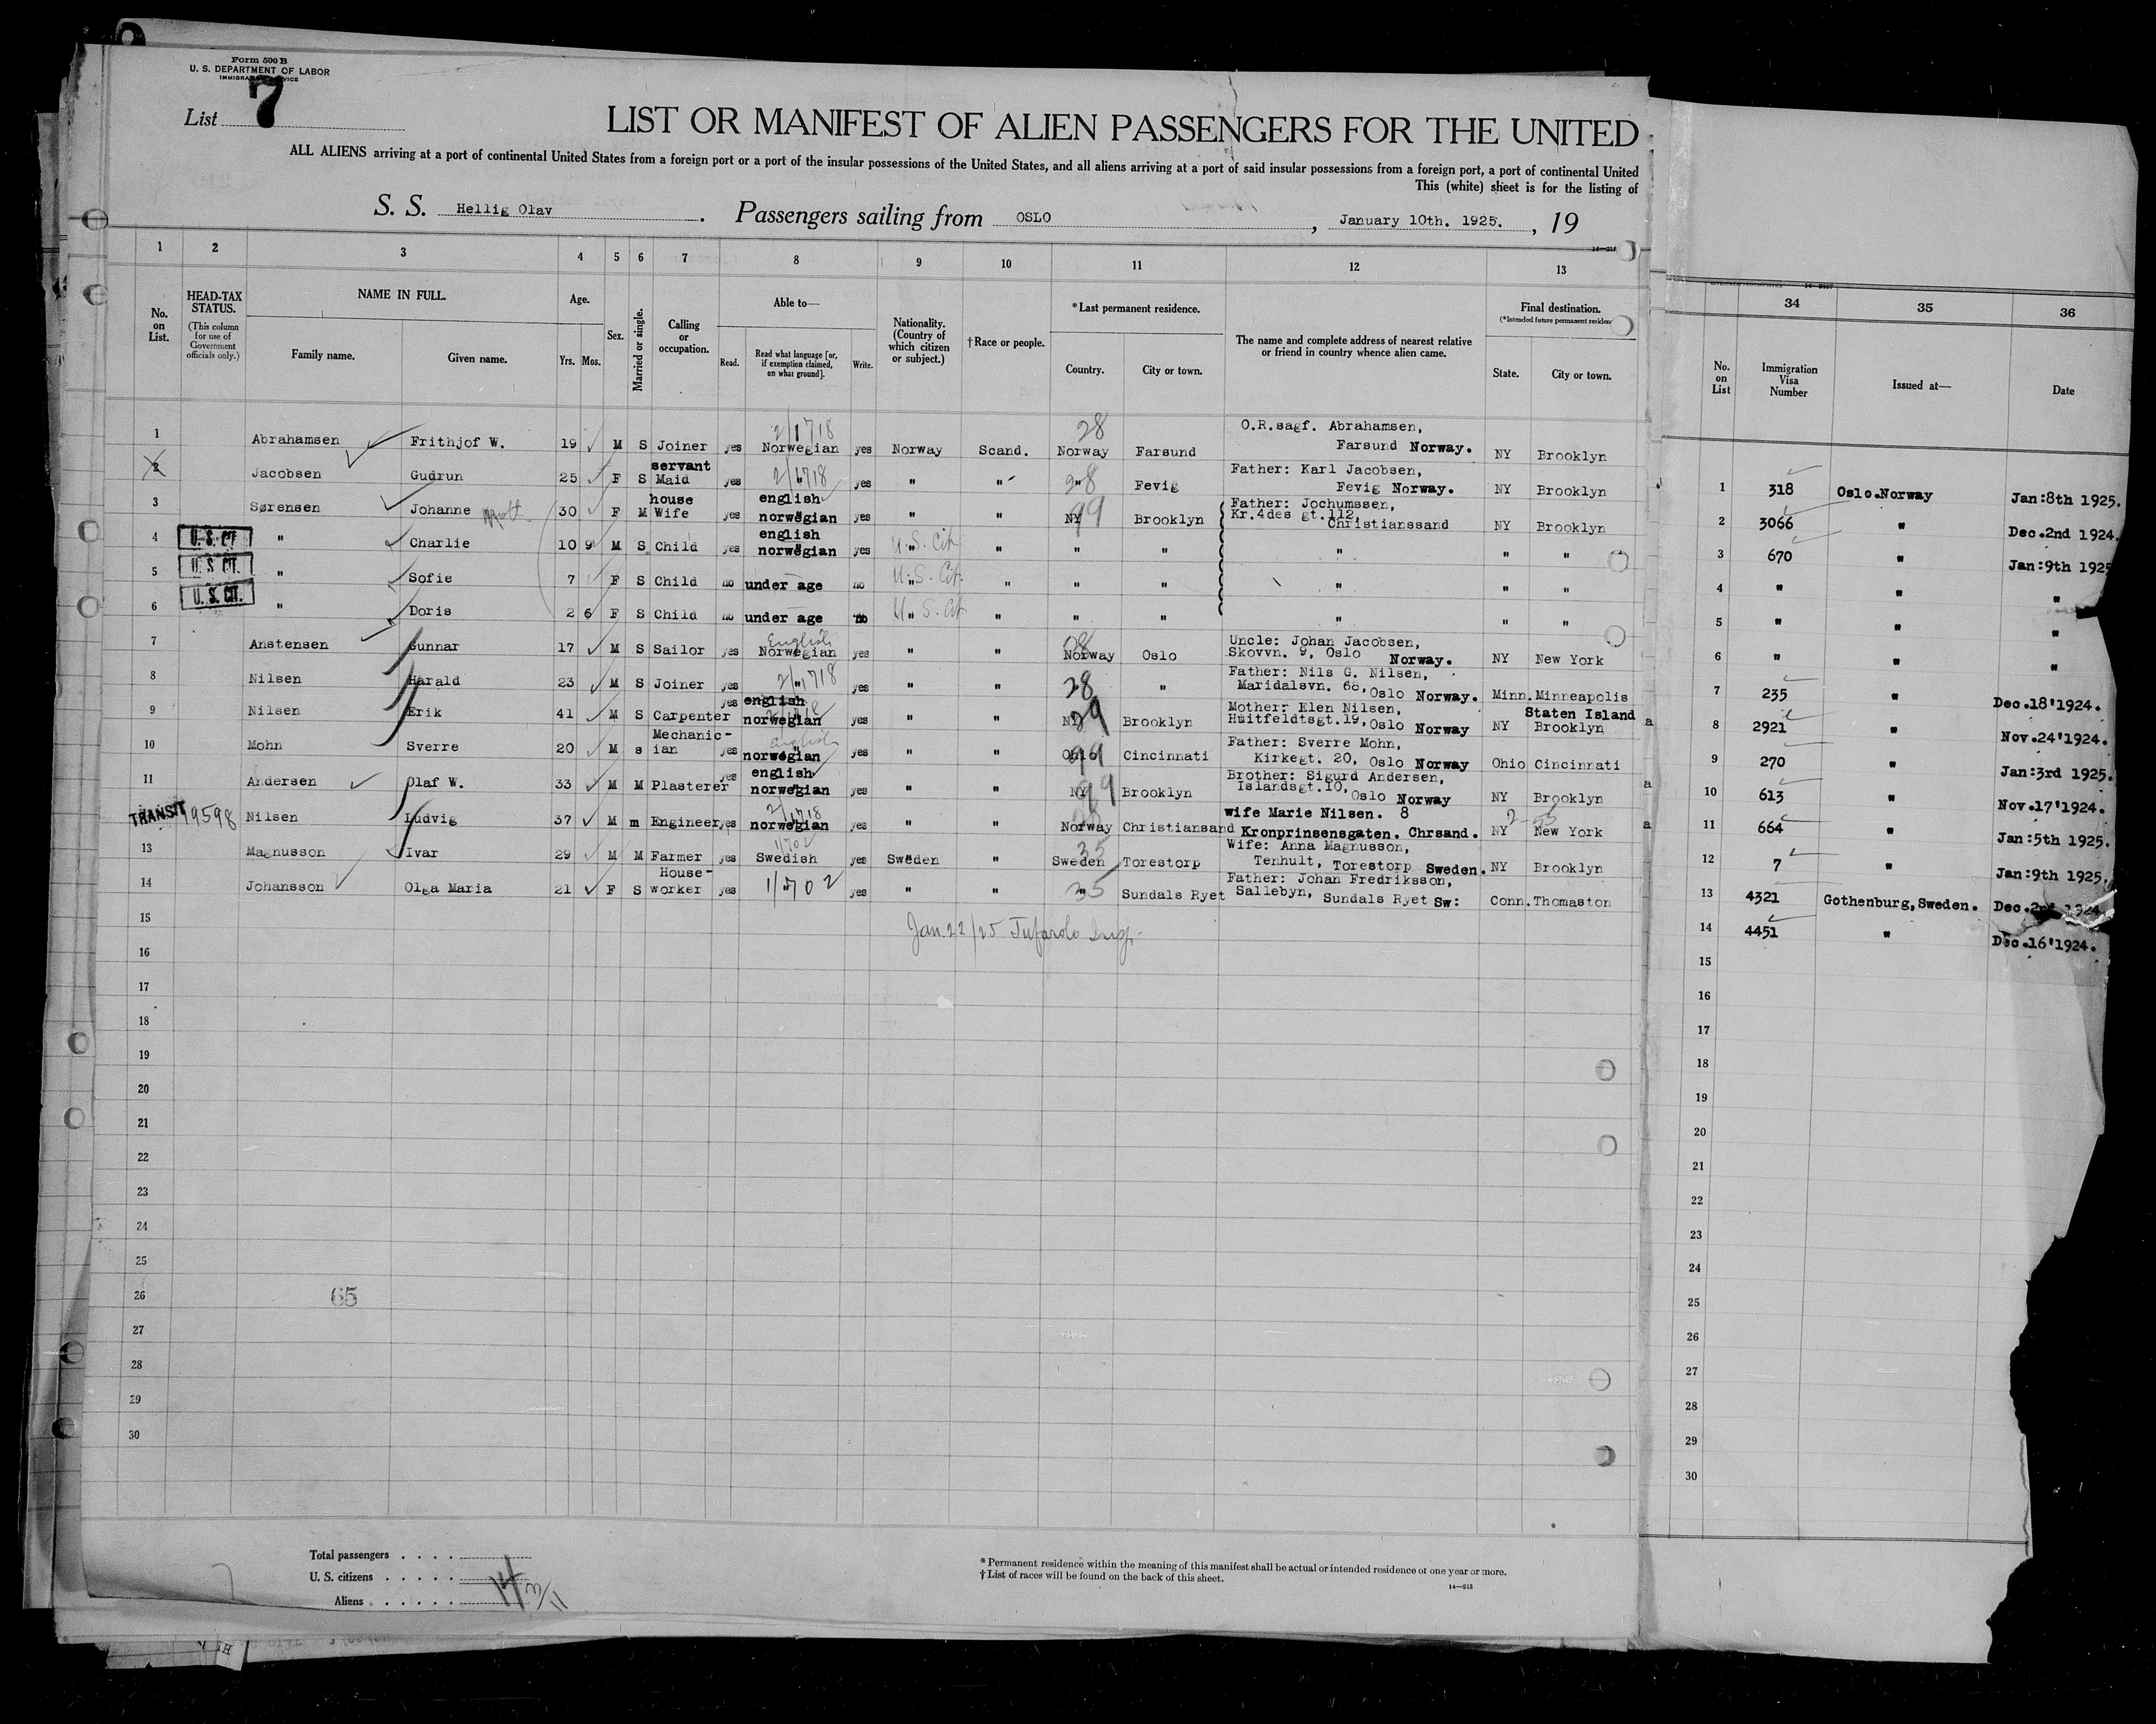 Form 500 B
U. S. DEPARTMENT OF LABOR
List 7
LIST OR MANIFEST OF ALIEN PASSENGERS FOR THE UNITED
ALL ALIENS arriving at a port of continental United States from a foreign port or a port of the insular possessions of the United States, and all aliens arriving at a port of said insular possessions from a foreign port, a port of continental United
This (white) sheet is for the listing of
S. S. Hellig Olav . Passengers sailing from OSLO , January 10th. 1925. , 19
1 2 3 4 5 6 7 8 9 10 11 12 13
No. on List.
HEAD-TAX STATUS.
(This column for use of Government officials only.)
NAME IN FULL.
Family name. Given name.
Age.
Yrs. Mos.
Sex.
Married or single.
Calling or occupation.
Able to—
Read. Read what language [or, if exemption claimed, on what ground]. Write.
Nationality. (Country of which citizen or subject.)
†Race or people.
*Last permanent residence.
Country. City or town.
The name and complete address of nearest relative or friend in country whence alien came.
Final destination.
(*Intended future permanent residence
State. City or town.
1 Abrahamsen Frithjof W. 19 M S Joiner yes Norwegian yes Norway Scand. 28 Norway Farsund O.R.sagf. Abrahamsen, Farsund Norway. NY Brooklyn
2 Jacobsen Gudrun 25 F S servant Maid yes " yes " " 28 " Fevig Father: Karl Jacobsen, Fevig Norway. NY Brooklyn
3 Sørensen Johanne 30 F M house Wife yes english norwegian yes " " NY 99 Brooklyn Father: Jochumssen, Kr.4des gt.112, Christianssand NY Brooklyn
4 U. S. CIT. " Charlie 10 9 M S Child yes english norwegian yes " U.S. Cit. " " " " " "
5 U. S. CIT. " Sofie 7 F S Child no under age no " U.S. Cit. " " " " " "
6 U. S. CIT. " Doris 2 6 F S Child no under age no " U.S. Cit. " " " " " "
7 Anstensen Gunnar 17 M S Sailor yes English Norwegian yes " " 28 Norway Oslo Uncle: Johan Jacobsen, Skovvn. 9, Oslo Norway. NY New York
8 Nilsen Harald 23 M S Joiner yes " yes " " 28 " Father: Nils G. Nilsen, Maridalsvn. 68, Oslo Norway. Minn. Minneapolis
9 Nilsen Erik 41 M S Carpenter yes english norwegian yes " " NY Brooklyn Mother: Elen Nilsen, Huitfeldtsgt.19, Oslo Norway NY Staten Island Brooklyn
10 Mohn Sverre 20 M s Mechanic-ian yes English norwegian yes " " Ohio 99 Cincinnati Father: Sverre Mohn, Kirkegt. 20, Oslo Norway Ohio Cincinnati
11 Andersen Olaf W. 33 M M Plasterer yes english norwegian yes " " NY 99 Brooklyn Brother: Sigurd Andersen, Islandsgt.10, Oslo Norway NY Brooklyn
TRANSIT 19598 Nilsen Ludvig 37 M m Engineer yes norwegian yes " " 28 Norway Christiansand wife Marie Nilsen. 8 Kronprinsensgaten. Chrsand. NY New York
13 Magnusson Ivar 29 M M Farmer yes Swedish yes Sweden " 35 Sweden Torestorp Wife: Anna Magnusson, Tenhult, Torestorp Sweden. NY Brooklyn
14 Johansson Olga Maria 21 F S House-worker yes " yes " " 35 " Sundals Ryet Father: Johan Fredriksson, Sallebyn, Sundals Ryet Sw: Conn. Thomaston
15
Jan 22/25
16
17
18
19
20
21
22
23
24
25
26
65
27
28
29
30
Total passengers . . . .
U. S. citizens . . . . .
Aliens . . . . .
14 3/11
* Permanent residence within the meaning of this manifest shall be actual or intended residence of one year or more.
† List of races will be found on the back of this sheet.
14—313
34 35 36
No. on List
Immigration Visa Number
Issued at—
Date
1 318 Oslo.Norway Jan:8th 1925.
2 3066 " Dec.2nd 1924.
3 670 " Jan:9th 1925
4 " " "
5 " " "
6 " " "
7 235 " Dec.18'1924.
8 2921 " Nov.24'1924.
9 270 " Jan:3rd 1925.
10 613 " Nov.17'1924.
11 664 " Jan:5th 1925.
12 7 " Jan:9th 1925.
13 4321 Gothenburg,Sweden. Dec.2nd 1924
14 4451 " Dec.16'1924.
15
16
17
18
19
20
21
22
23
24
25
26
27
28
29
30